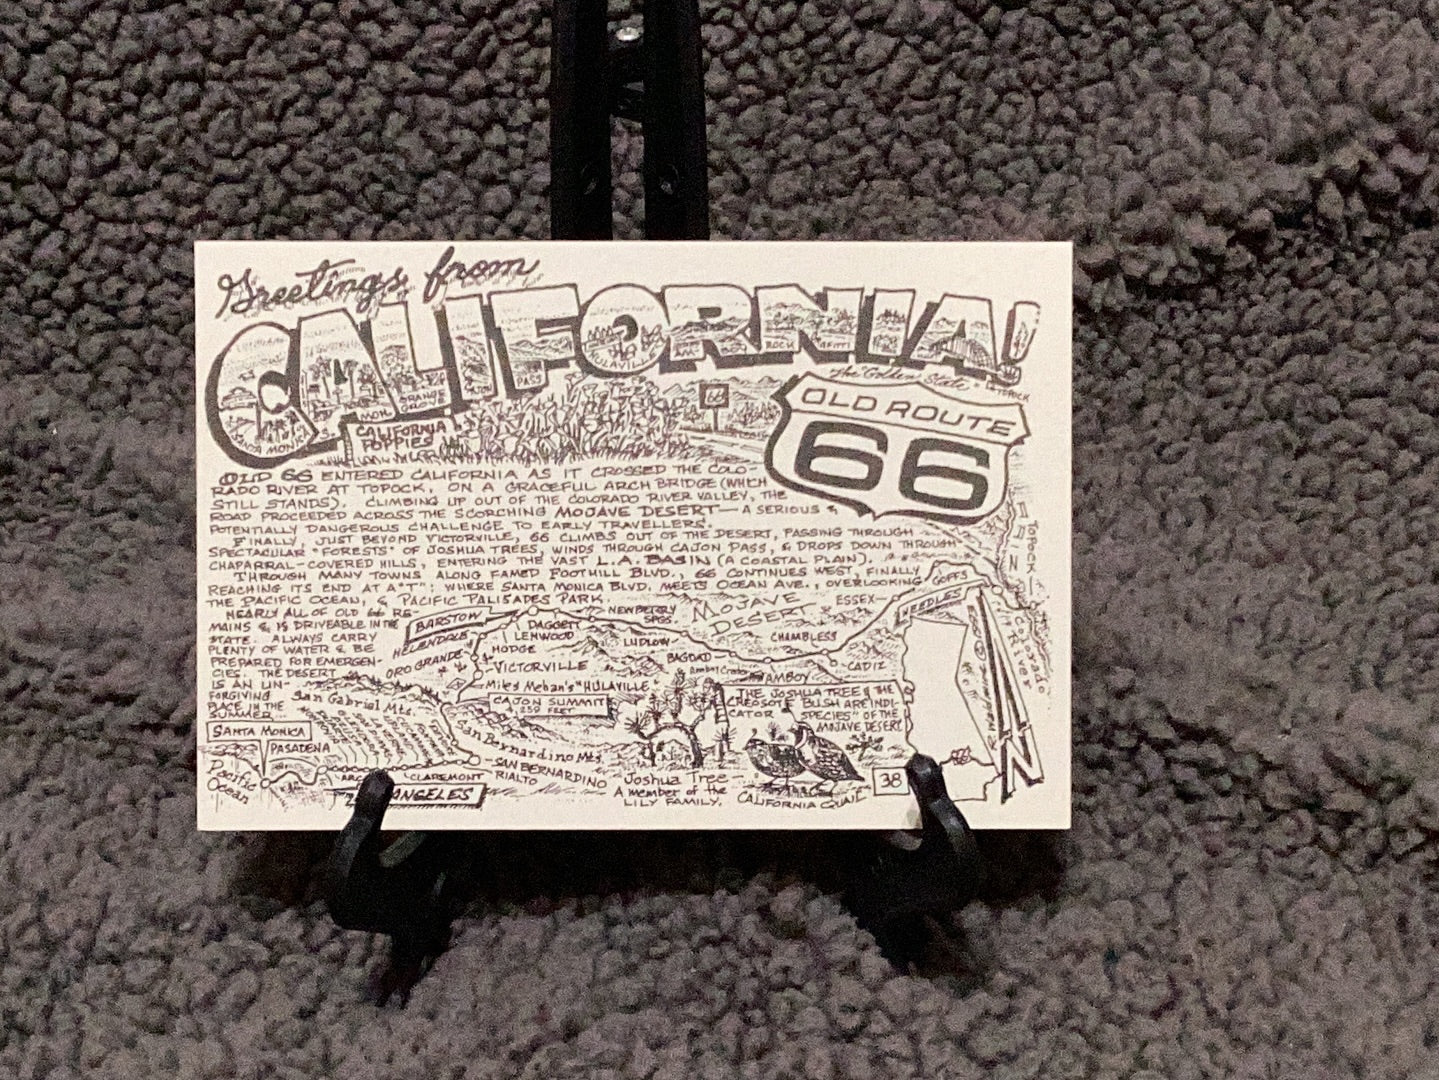 Greetings from
CALIFORNIA!
The "Golden State"
TOPOCK
OLD ROUTE
66
66
ORANGE
PASS
ROCK
SANTA MONICA
CALIFORNIA
POPPIES
OLD 66 ENTERED CALIFORNIA AS IT CROSSED THE COLO-
RADO RIVER AT TOPOCK, ON A GRACEFUL ARCH BRIDGE (WHICH
STILL STANDS). CLIMBING UP OUT OF THE COLORADO RIVER VALLEY, THE
ROAD PROCEEDED ACROSS THE SCORCHING MOJAVE DESERT — A SERIOUS &
POTENTIALLY DANGEROUS CHALLENGE TO EARLY TRAVELLERS.
FINALLY, JUST BEYOND VICTORVILLE, 66 CLIMBS OUT OF THE DESERT, PASSING THROUGH
SPECTACULAR "FORESTS" OF JOSHUA TREES, WINDS THROUGH CAJON PASS, & DROPS DOWN THROUGH
CHAPARRAL-COVERED HILLS, ENTERING THE VAST L.A. BASIN (A COASTAL PLAIN).
THROUGH MANY TOWNS ALONG FAMED FOOTHILL BLVD., 66 CONTINUES WEST, FINALLY
REACHING ITS END AT A "T": WHERE SANTA MONICA BLVD. MEETS OCEAN AVE., OVERLOOKING
THE PACIFIC OCEAN, & PACIFIC PALISADES PARK.
NEARLY ALL OF OLD 66 RE-
MAINS & IS DRIVEABLE IN THE
STATE. ALWAYS CARRY
PLENTY OF WATER & BE
PREPARED FOR EMERGEN-
CIES... THE DESERT
IS AN UN-
FORGIVING
PLACE IN THE
SUMMER...
BARSTOW
HELENDALE
ORO GRANDE
DAGGETT
LENWOOD
HODGE
VICTORVILLE
NEWBERRY
SPGS
LUDLOW
BAGDAD
MOJAVE
DESERT
CHAMBLESS
AMBOY
Amboy Crater
CADIZ
ESSEX
GOFFS
NEEDLES
TOPOCK
Colorado
River
Miles Mahan's "HULAVILLE"
CAJON SUMMIT
4259 FEET
San Gabriel Mts.
San Bernardino Mts.
SAN BERNARDINO
RIALTO
CLAREMONT
SANTA MONICA
PASADENA
Pacific
Ocean
ANGELES
THE JOSHUA TREE & THE
CREOSOTE BUSH ARE INDI-
CATOR SPECIES" OF THE
MOJAVE DESERT
Joshua Tree —
A member of the
LILY FAMILY.
CALIFORNIA QUAIL
38
N